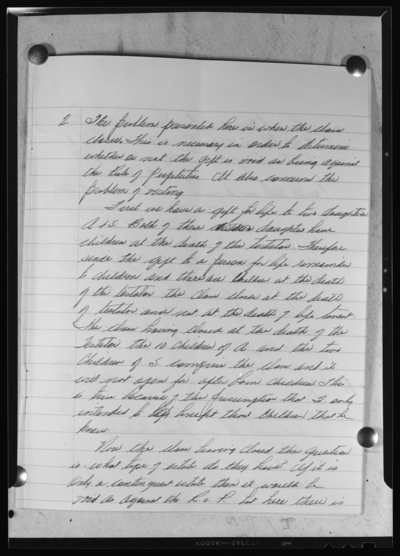 2 The problem presented here is when the class
closes. This is necessary in order to determine
whether or not the gift is void as being against
the Rule of Perpetuities. It also concerns the
problem of vesting.
First we have a gift for life to two daughters
A & S. Both of these daughters have
children at the death of the testator. Therefore
since the gift to a person for life remainder
to children and there are children at the death
of the testator the class closes at the death
of testator and not at the death of life tenant.
The class having closed at the death of the
testator the 10 children of A and the two
children of S comprise the class and it
will not open for after born children. This
is true because of the presumption that T only
intended to benefit those children that he
knew.
Now the class having closed the question
is what type of estate do they have. If it is
only a contingent estate then it would be
void as against the R. o P. but here there is